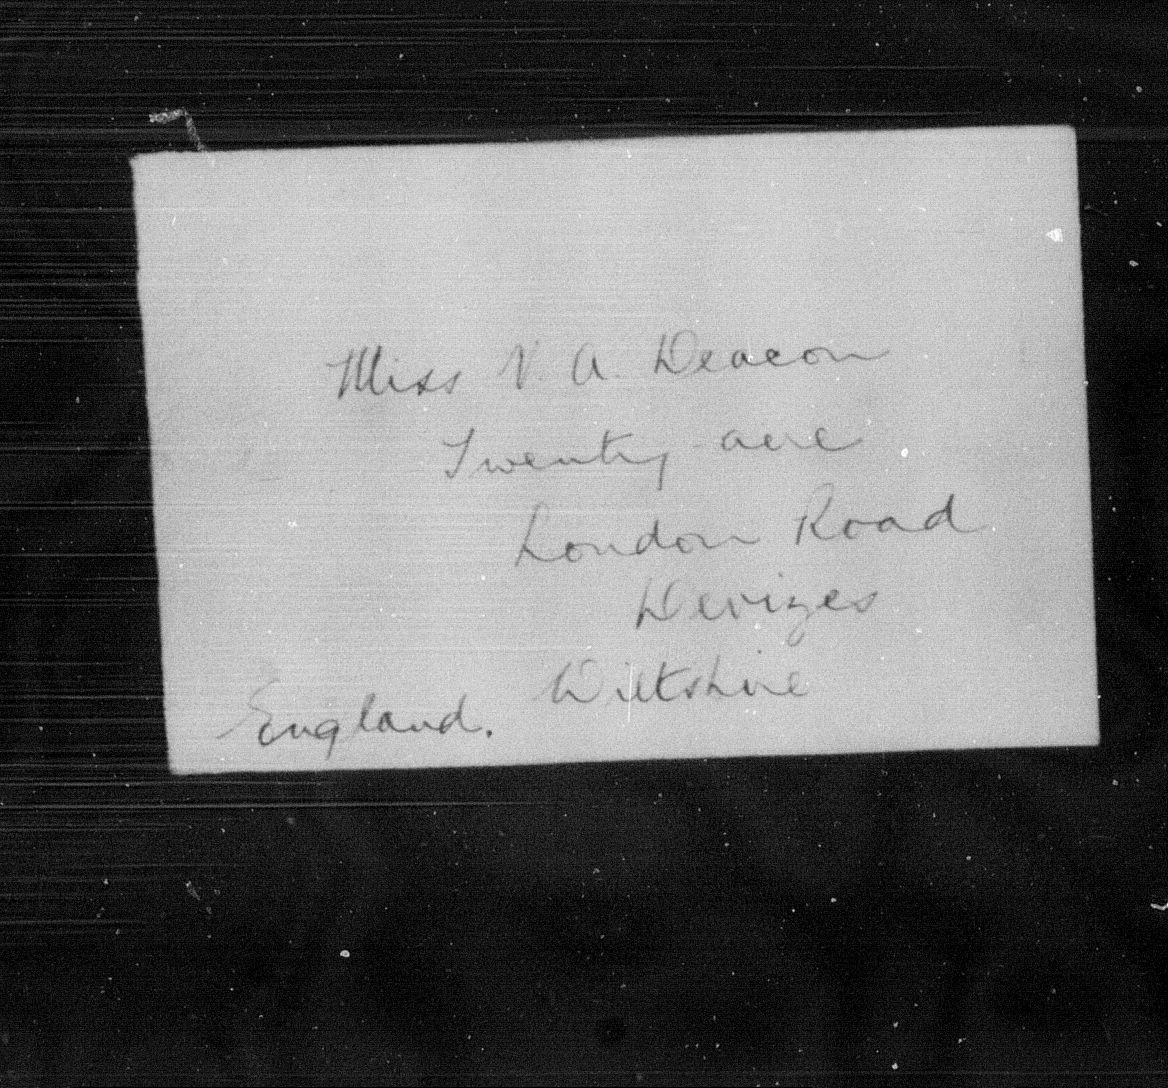 Miss V. A. Deacon
Twenty acre
London Road
Devizes
Wiltshire
England.